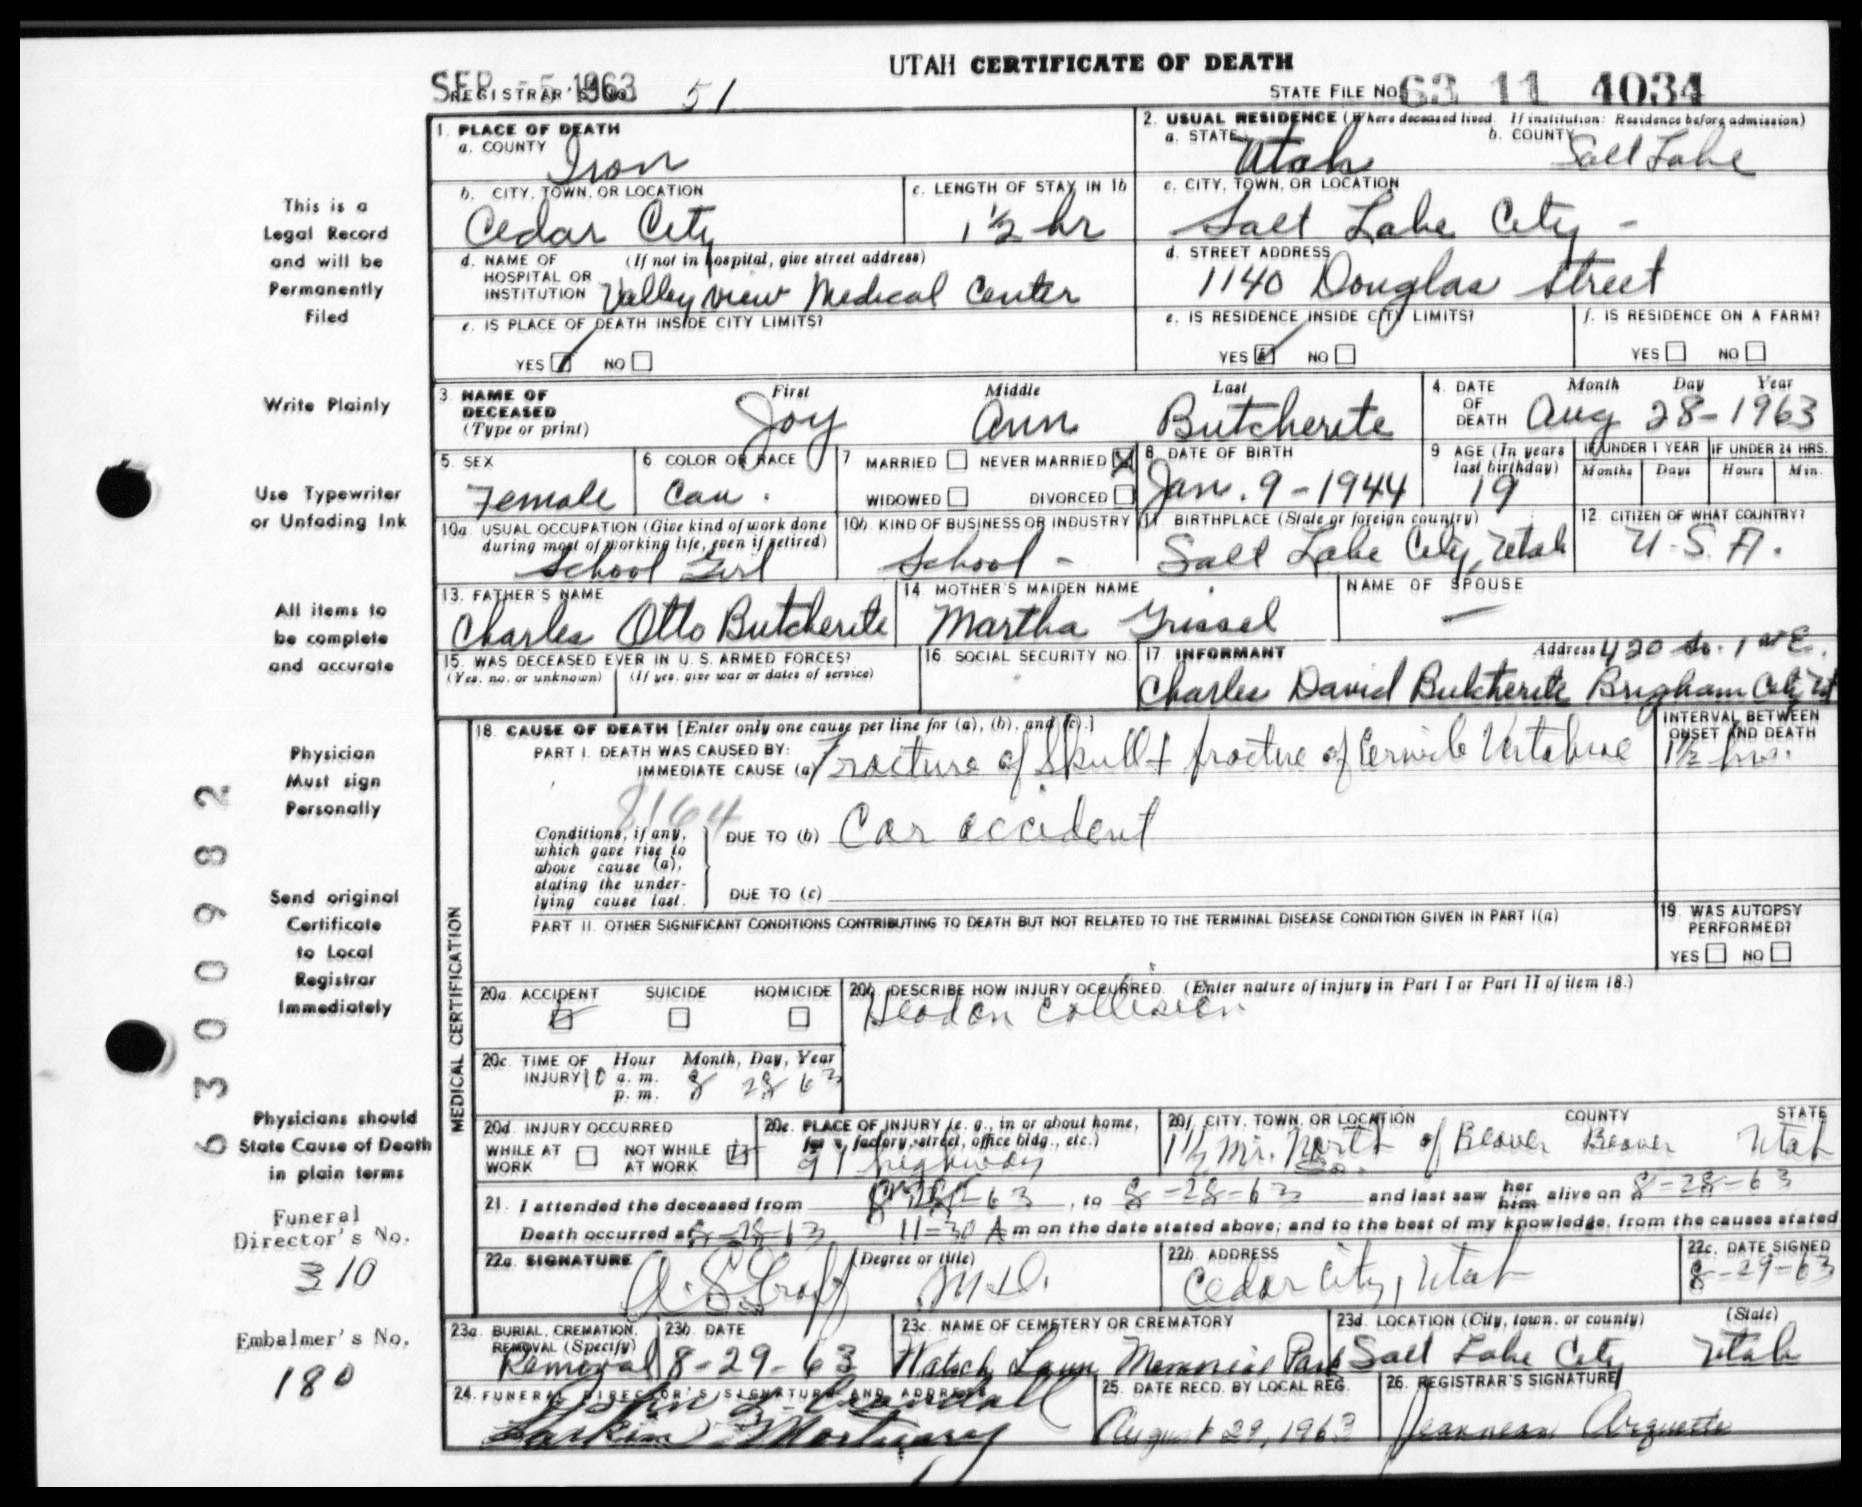 UTAH CERTIFICATE OF DEATH
SEP -5 1963
REGISTRAR'S NO. 51
STATE FILE NO. 63 11 4034
1. PLACE OF DEATH
a. COUNTY
Iron
2. USUAL RESIDENCE (Where deceased lived. If institution: Residence before admission)
a. STATE Utah b. COUNTY Salt Lake
b. CITY, TOWN, OR LOCATION
Cedar City
c. LENGTH OF STAY IN 1b
1 1/2 hr
c. CITY, TOWN, OR LOCATION
Salt Lake City -
d. NAME OF HOSPITAL OR INSTITUTION (If not in hospital, give street address)
Valley view Medical Center
d. STREET ADDRESS
1140 Douglas Street
e. IS PLACE OF DEATH INSIDE CITY LIMITS?
YES NO
e. IS RESIDENCE INSIDE CITY LIMITS?
YES NO
f. IS RESIDENCE ON A FARM?
YES NO
3. NAME OF DECEASED (Type or print)
First Middle Last
Joy Ann Butcherite
4. DATE OF DEATH
Month Day Year
Aug 28-1963
5. SEX
Female
6 COLOR OR RACE
Cau.
7 MARRIED NEVER MARRIED
WIDOWED DIVORCED
8. DATE OF BIRTH
Jan. 9-1944
9 AGE (In years last birthday)
19
IF UNDER 1 YEAR
Months Days
IF UNDER 24 HRS.
Hours Min.
10a. USUAL OCCUPATION (Give kind of work done during most of working life, even if retired)
School Girl
10b. KIND OF BUSINESS OR INDUSTRY
School -
11. BIRTHPLACE (State or foreign country)
Salt Lake City, Utah
12. CITIZEN OF WHAT COUNTRY?
U.S.A.
13. FATHER'S NAME
Charles Otto Butcherite
14. MOTHER'S MAIDEN NAME
Martha Grissel
NAME OF SPOUSE
—
15. WAS DECEASED EVER IN U. S. ARMED FORCES?
(Yes, no, or unknown) (If yes, give war or dates of service)
16. SOCIAL SECURITY NO.
17. INFORMANT Address 420 So. 1st E.
Charles David Butcherite Brigham City, Ut
18. CAUSE OF DEATH [Enter only one cause per line for (a), (b), and (c).]
PART I. DEATH WAS CAUSED BY:
IMMEDIATE CAUSE (a) Fracture of Skull + fracture of Cervicle Vertabrae
INTERVAL BETWEEN ONSET AND DEATH
1 1/2 hrs.
8164
Conditions, if any, which gave rise to above cause (a), stating the underlying cause last.
DUE TO (b) Car accident
DUE TO (c)
PART II. OTHER SIGNIFICANT CONDITIONS CONTRIBUTING TO DEATH BUT NOT RELATED TO THE TERMINAL DISEASE CONDITION GIVEN IN PART I(a)
19. WAS AUTOPSY PERFORMED?
YES NO
MEDICAL CERTIFICATION
20a. ACCIDENT SUICIDE HOMICIDE
20b. DESCRIBE HOW INJURY OCCURRED. (Enter nature of injury in Part I or Part II of item 18.)
Head on collision
20c. TIME OF INJURY
Hour Month, Day, Year
10 a. m. p. m. 8 28 63
20d. INJURY OCCURRED
WHILE AT WORK NOT WHILE AT WORK
20e. PLACE OF INJURY (e. g., in or about home, farm, factory, street, office bldg., etc.)
91 highway
20f. CITY, TOWN, OR LOCATION COUNTY STATE
1 1/2 Mi. North of Beaver Beaver Utah
So.
21. I attended the deceased from 8-28-63, to 8-28-63 and last saw her him alive on 8-28-63
Death occurred at 8-28-63 11=30 A m on the date stated above; and to the best of my knowledge, from the causes stated
22a. SIGNATURE (Degree or title)
M.D.
22b. ADDRESS
Cedar City, Utah
22c. DATE SIGNED
8-29-63
23a. BURIAL, CREMATION, REMOVAL (Specify)
Removal
23b. DATE
8-29-63
23c. NAME OF CEMETERY OR CREMATORY
Wasatch Lawn Memorial Park
23d. LOCATION (City, town, or county) (State)
Salt Lake City Utah
24. FUNERAL DIRECTOR'S SIGNATURE AND ADDRESS
John L. Crandall
Larkin Mortuary
25. DATE RECD. BY LOCAL REG.
August 29, 1963
26. REGISTRAR'S SIGNATURE
Jeannean Arquette
This is a
Legal Record
and will be
Permanently
Filed
Write Plainly
Use Typewriter
or Unfading Ink
All items to
be complete
and accurate
Physician
Must sign
Personally
Send original
Certificate
to Local
Registrar
Immediately
Physicians should
State Cause of Death
in plain terms
Funeral
Director's No.
310
Embalmer's No.
180
6300982